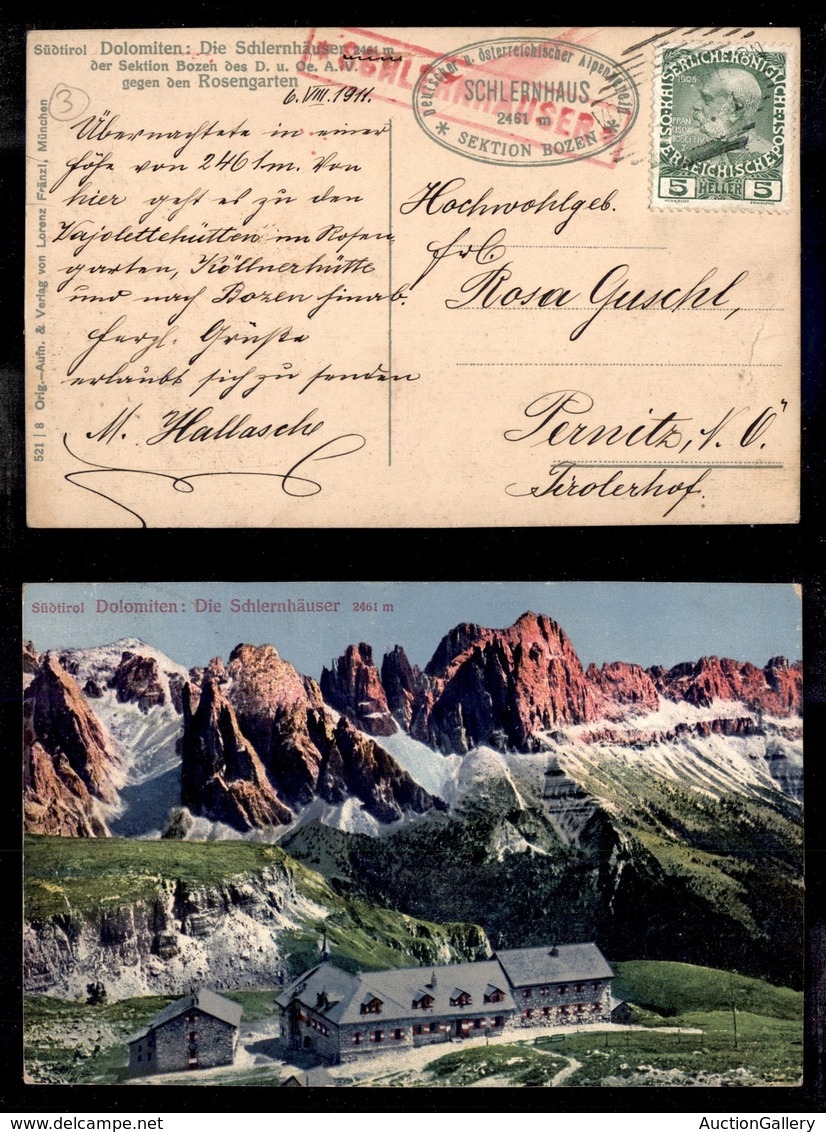 Südtirol Dolomiten: Die Schlernhäuser 2461 m
der Sektion Bozen des D. u. Oe. A.V.
gegen den Rosengarten
3
6. VIII. 1911.
Übernachtete in einer
Höhe von 2461 m. Von
hier geht es zu den
Vajolettehütten im Rosen-
garten, Köllnerhütte
und nach Bozen hinab.
Herzl. Grüße
erlaubt sich zu senden
M. Hallasche
521 | 8 Orig.-Aufn. & Verlag von Lorenz Fränzl, München
* SCHLERNHÄUSER *
Deutscher u. österreichischer Alpenverein
SCHLERNHAUS
2461 m
* SEKTION BOZEN *
KAISERLICHE KÖNIGLICHE
ÖSTERREICHISCHE POST
1908
FRANZ JOSEF I
5 HELLER 5
Hochwohlgeb.
Frl.
Rosa Guschl,
Pernitz, N. Ö.
Tirolerhof.
Südtirol Dolomiten: Die Schlernhäuser 2461 m
AuctionGallery